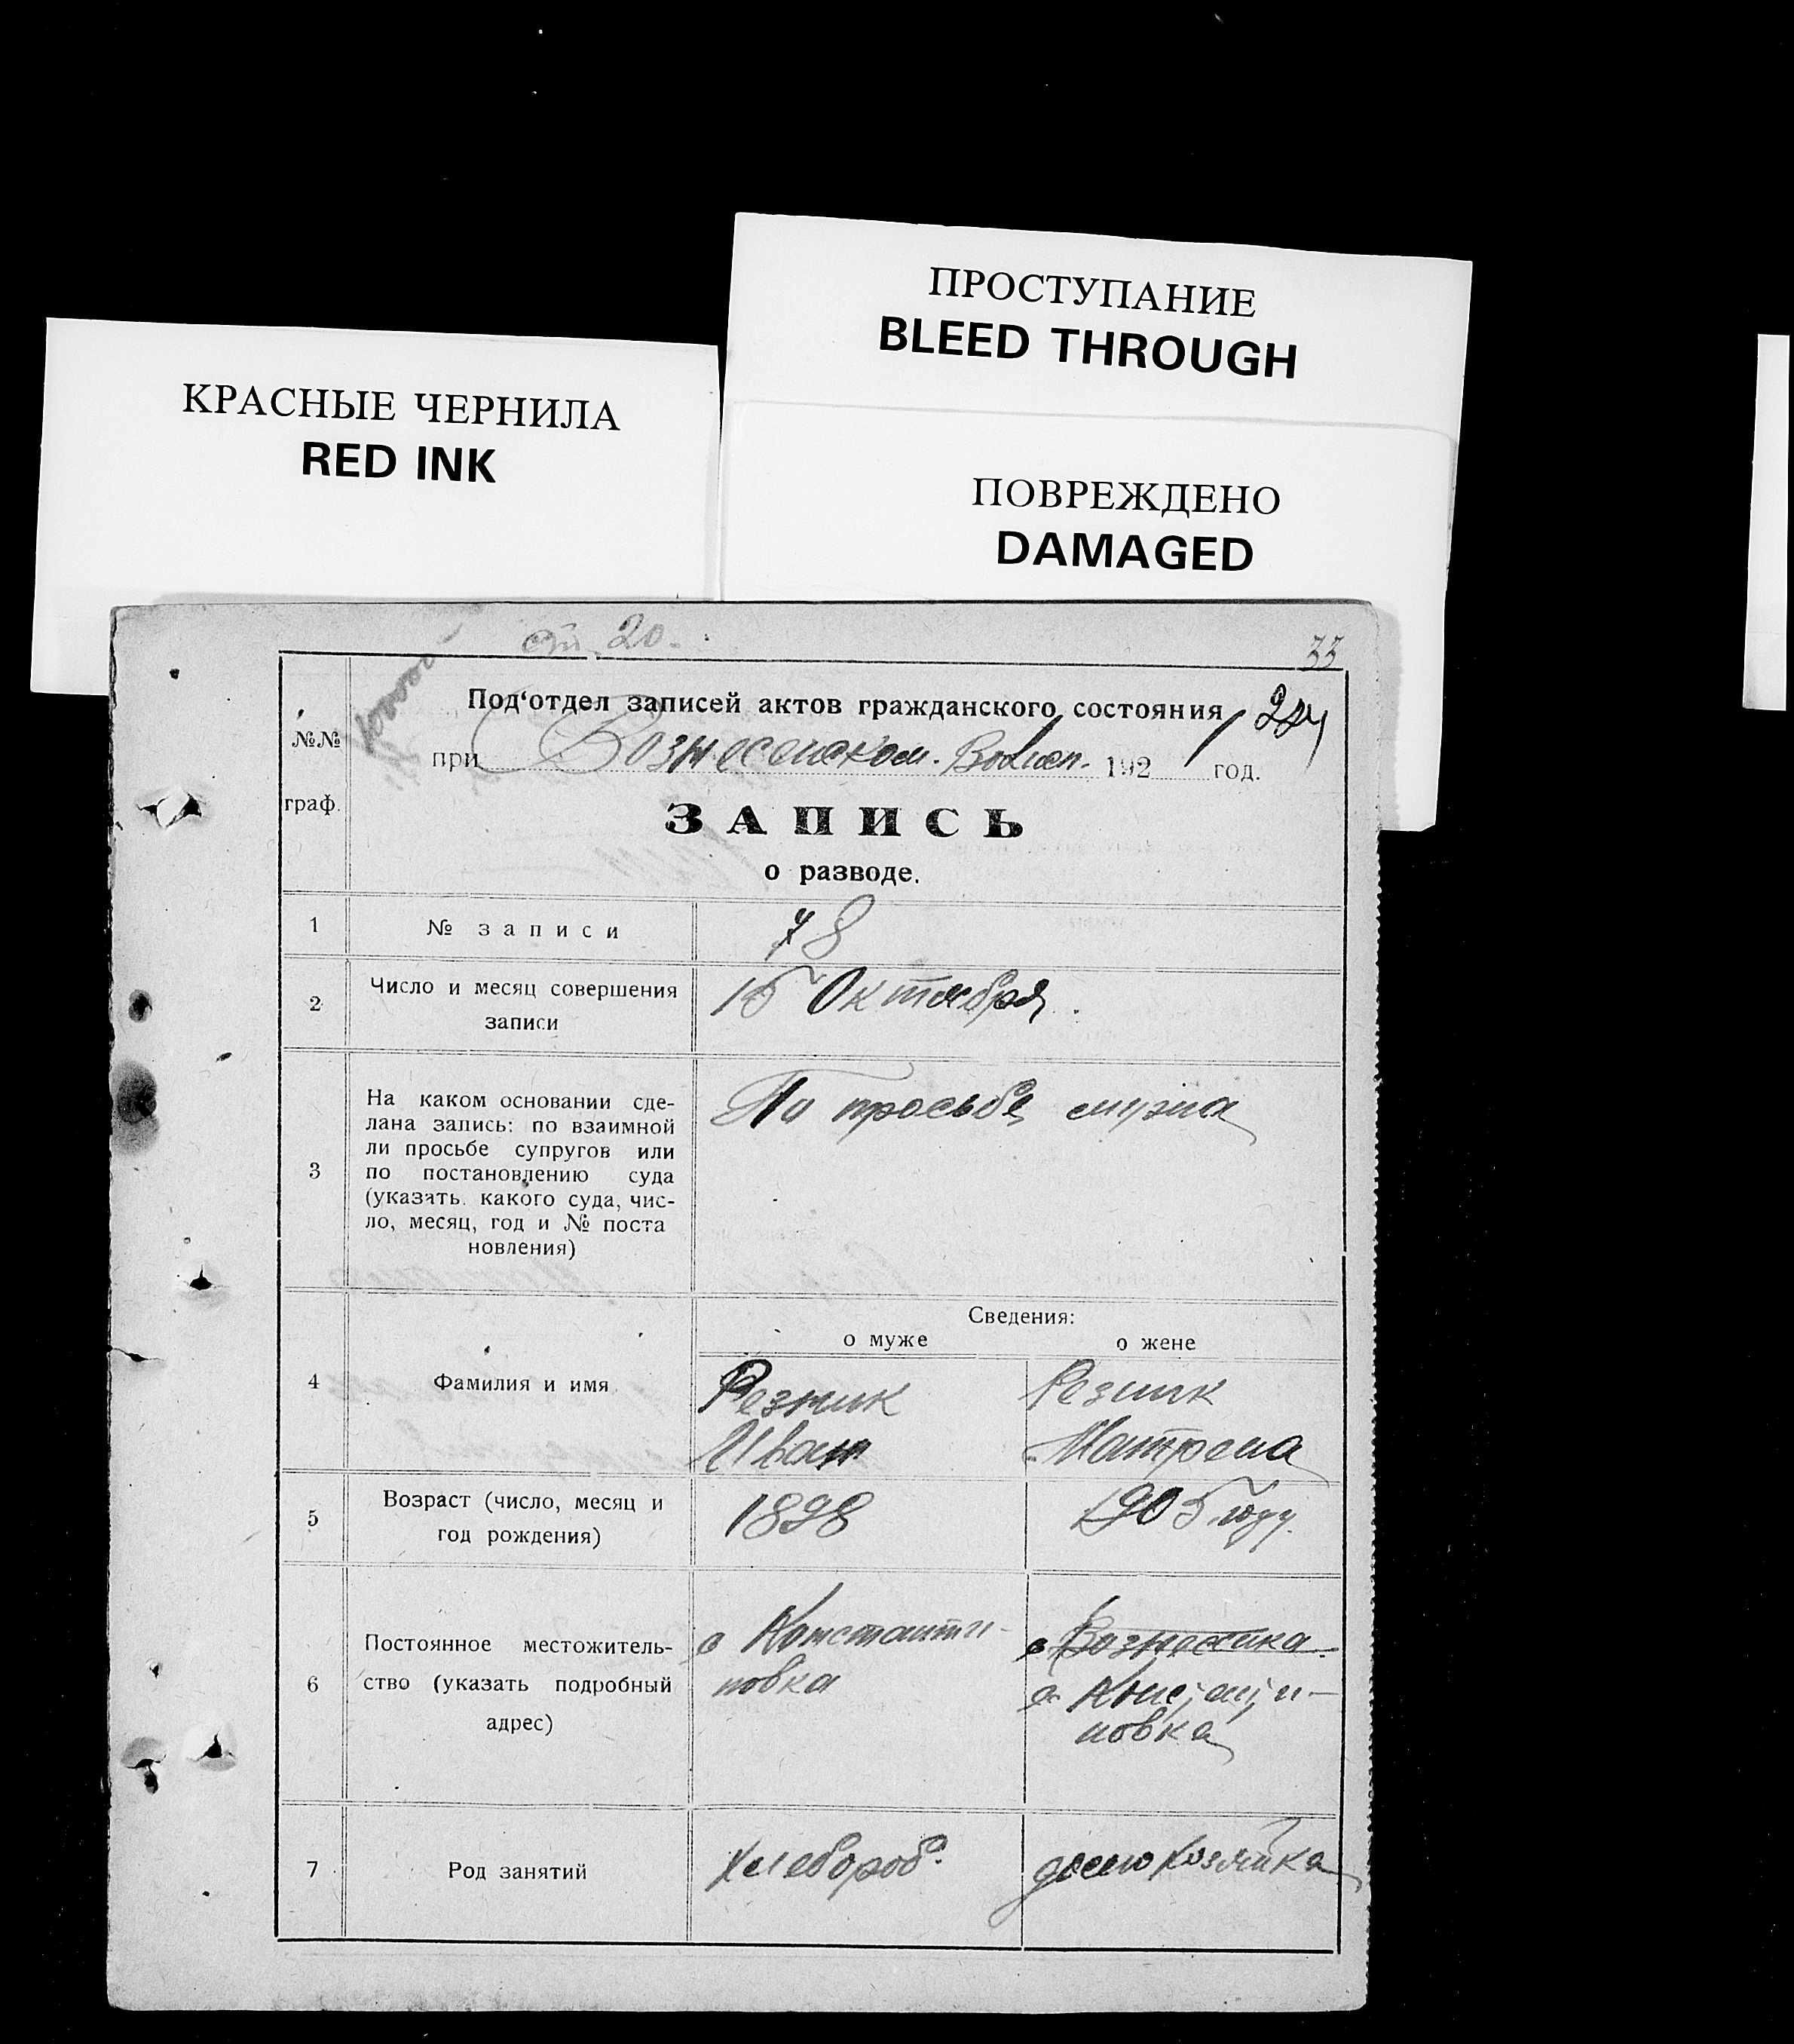 ПРОСТУПАНИЕ
BLEED THROUGH
КРАСНЫЕ ЧЕРНИЛА
RED INK
ПОВРЕЖДЕНО
DAMAGED
ст. 20.
33
№№
граф.
Под‘отдел записей актов гражданского состояния
при Вознесенском. Волисп. 192 год.
ЗАПИСЬ
о разводе.
1 № записи 78
2 Число и месяц совершения
записи
15 Октября.
3 На каком основании сде-
лана запись: по взаимной
ли просьбе супругов или
по постановлению суда
(указать. какого суда, чис-
ло, месяц, год и № поста
новления)
По просьбе мужа
Сведения:
о муже о жене
4 Фамилия и имя
Резник Резник
Иван Матрена
5 Возраст (число, месяц и
год рождения)
1898 1905 году.
6 Постоянное местожитель-
ство (указать подробный
адрес)
с Константи-
новка
с Вознесенка
с. Константи-
новка
7 Род занятий
Хлебороб. домохозяйка